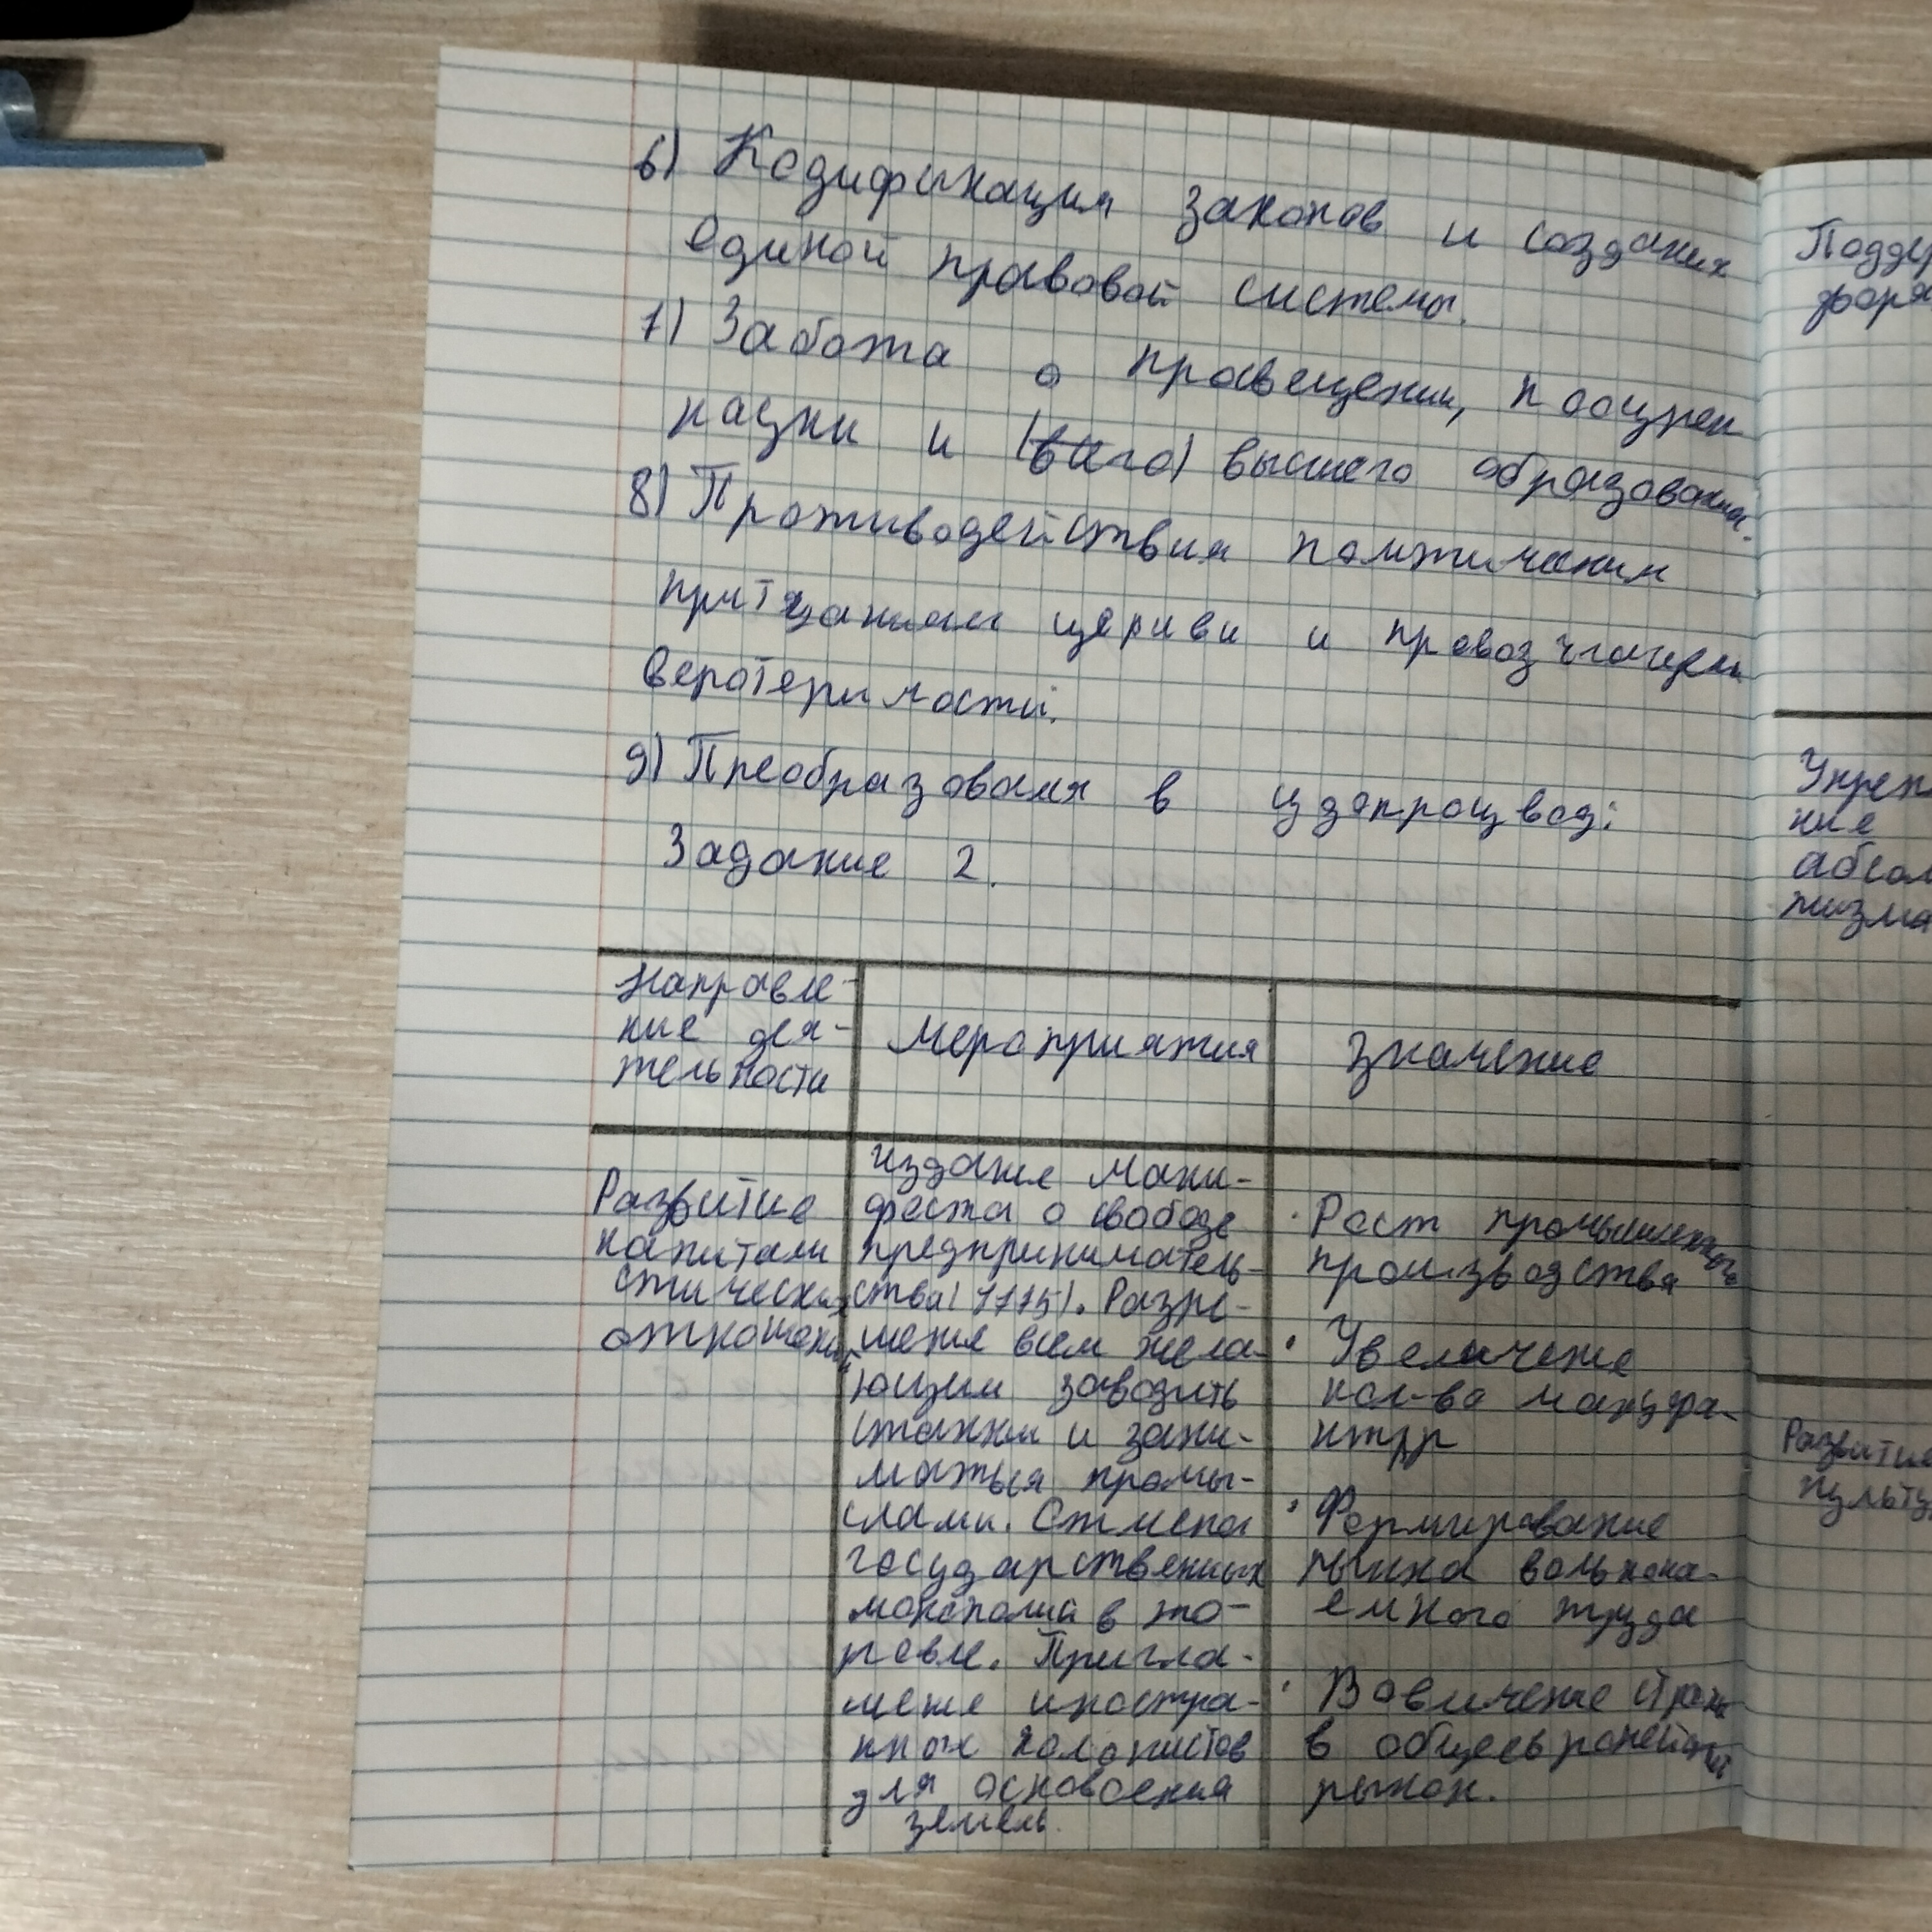 6) Кодификация законов и создание
единой правовой системы.
7) Забота о просвещении, поощрен
науки и (выго) высшего образования.
8) Противодействия политическим
притязаниям церкви и провозглащени
веротеримости.
9) Преобразования в
Задание 2.
Направле-
ние дея-
тельности
Мероприятия
Значение
Развитие
капитали
стических
отношений
издание мани-
феста о свободе
предприниматель-
ства (1775). Разре-
шение всем жела-
ющим заводить
станки и зани-
маться промы-
слами. Отмена
государственных
монополий в то-
ргвле. Пригла-
шение иностра-
нных колонистов
для освоения
земель.
· Рост промышленного
производства
· Увеличение
кол-ва мануфа-
ктур
· Формирование
рынка вольнона-
емного труда
· Вовлечение страны
в общеевропейский
рынок.
Поддер
форм
Укреп
ние
абсол
тизма
Развитие
культу